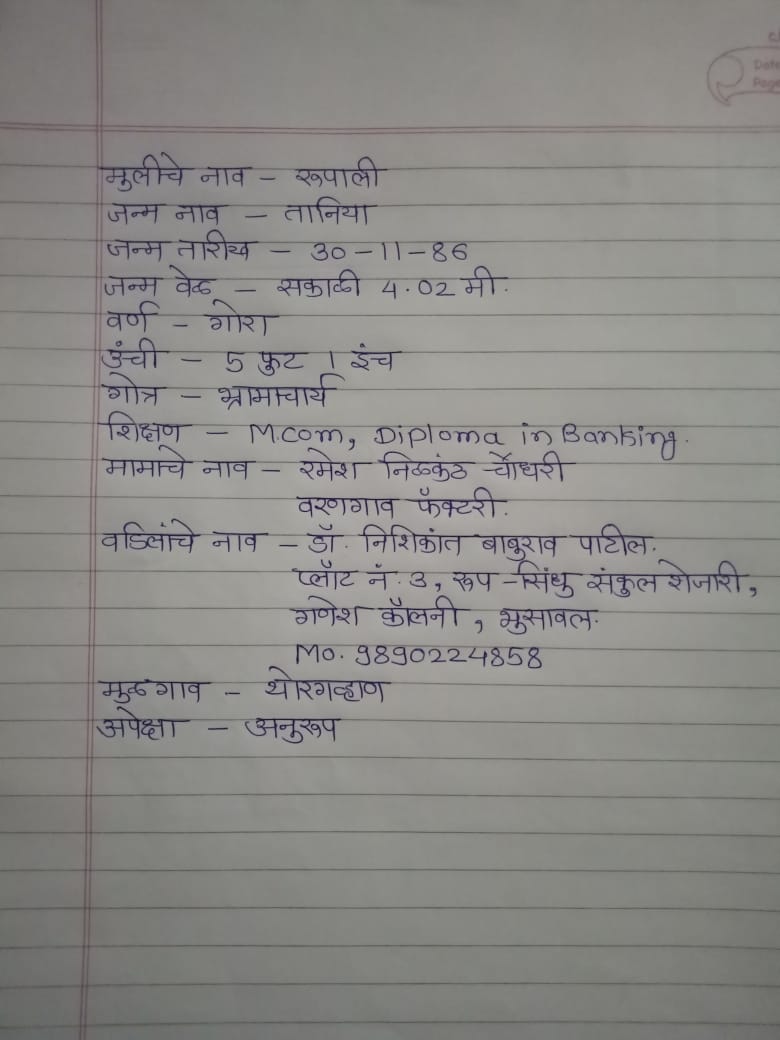 Date
Page
मुलीचे नाव – रूपाली
जन्म नाव – तानिया
जन्म तारीख – 30-11-86
जन्म वेळ – सकाळी 4.02 मी.
वर्ण – गोरा
उंची – 5 फुट 1 इंच
गोत्र – भ्रामाचार्य
शिक्षण – M.com, Diploma in Banking.
मामाचे नाव – रमेश निळकंठ चौधरी
वरणगाव फॅक्टरी.
वडिलांचे नाव – डॉ. निशिकांत बाबुराव पाटील.
प्लॉट नं. 3, रूप-सिंधु संकुल शेजारी,
गणेश कॉलनी, भुसावल.
Mo. 9890224858
मुळगाव – थोरगव्हाण
अपेक्षा – अनुरूप